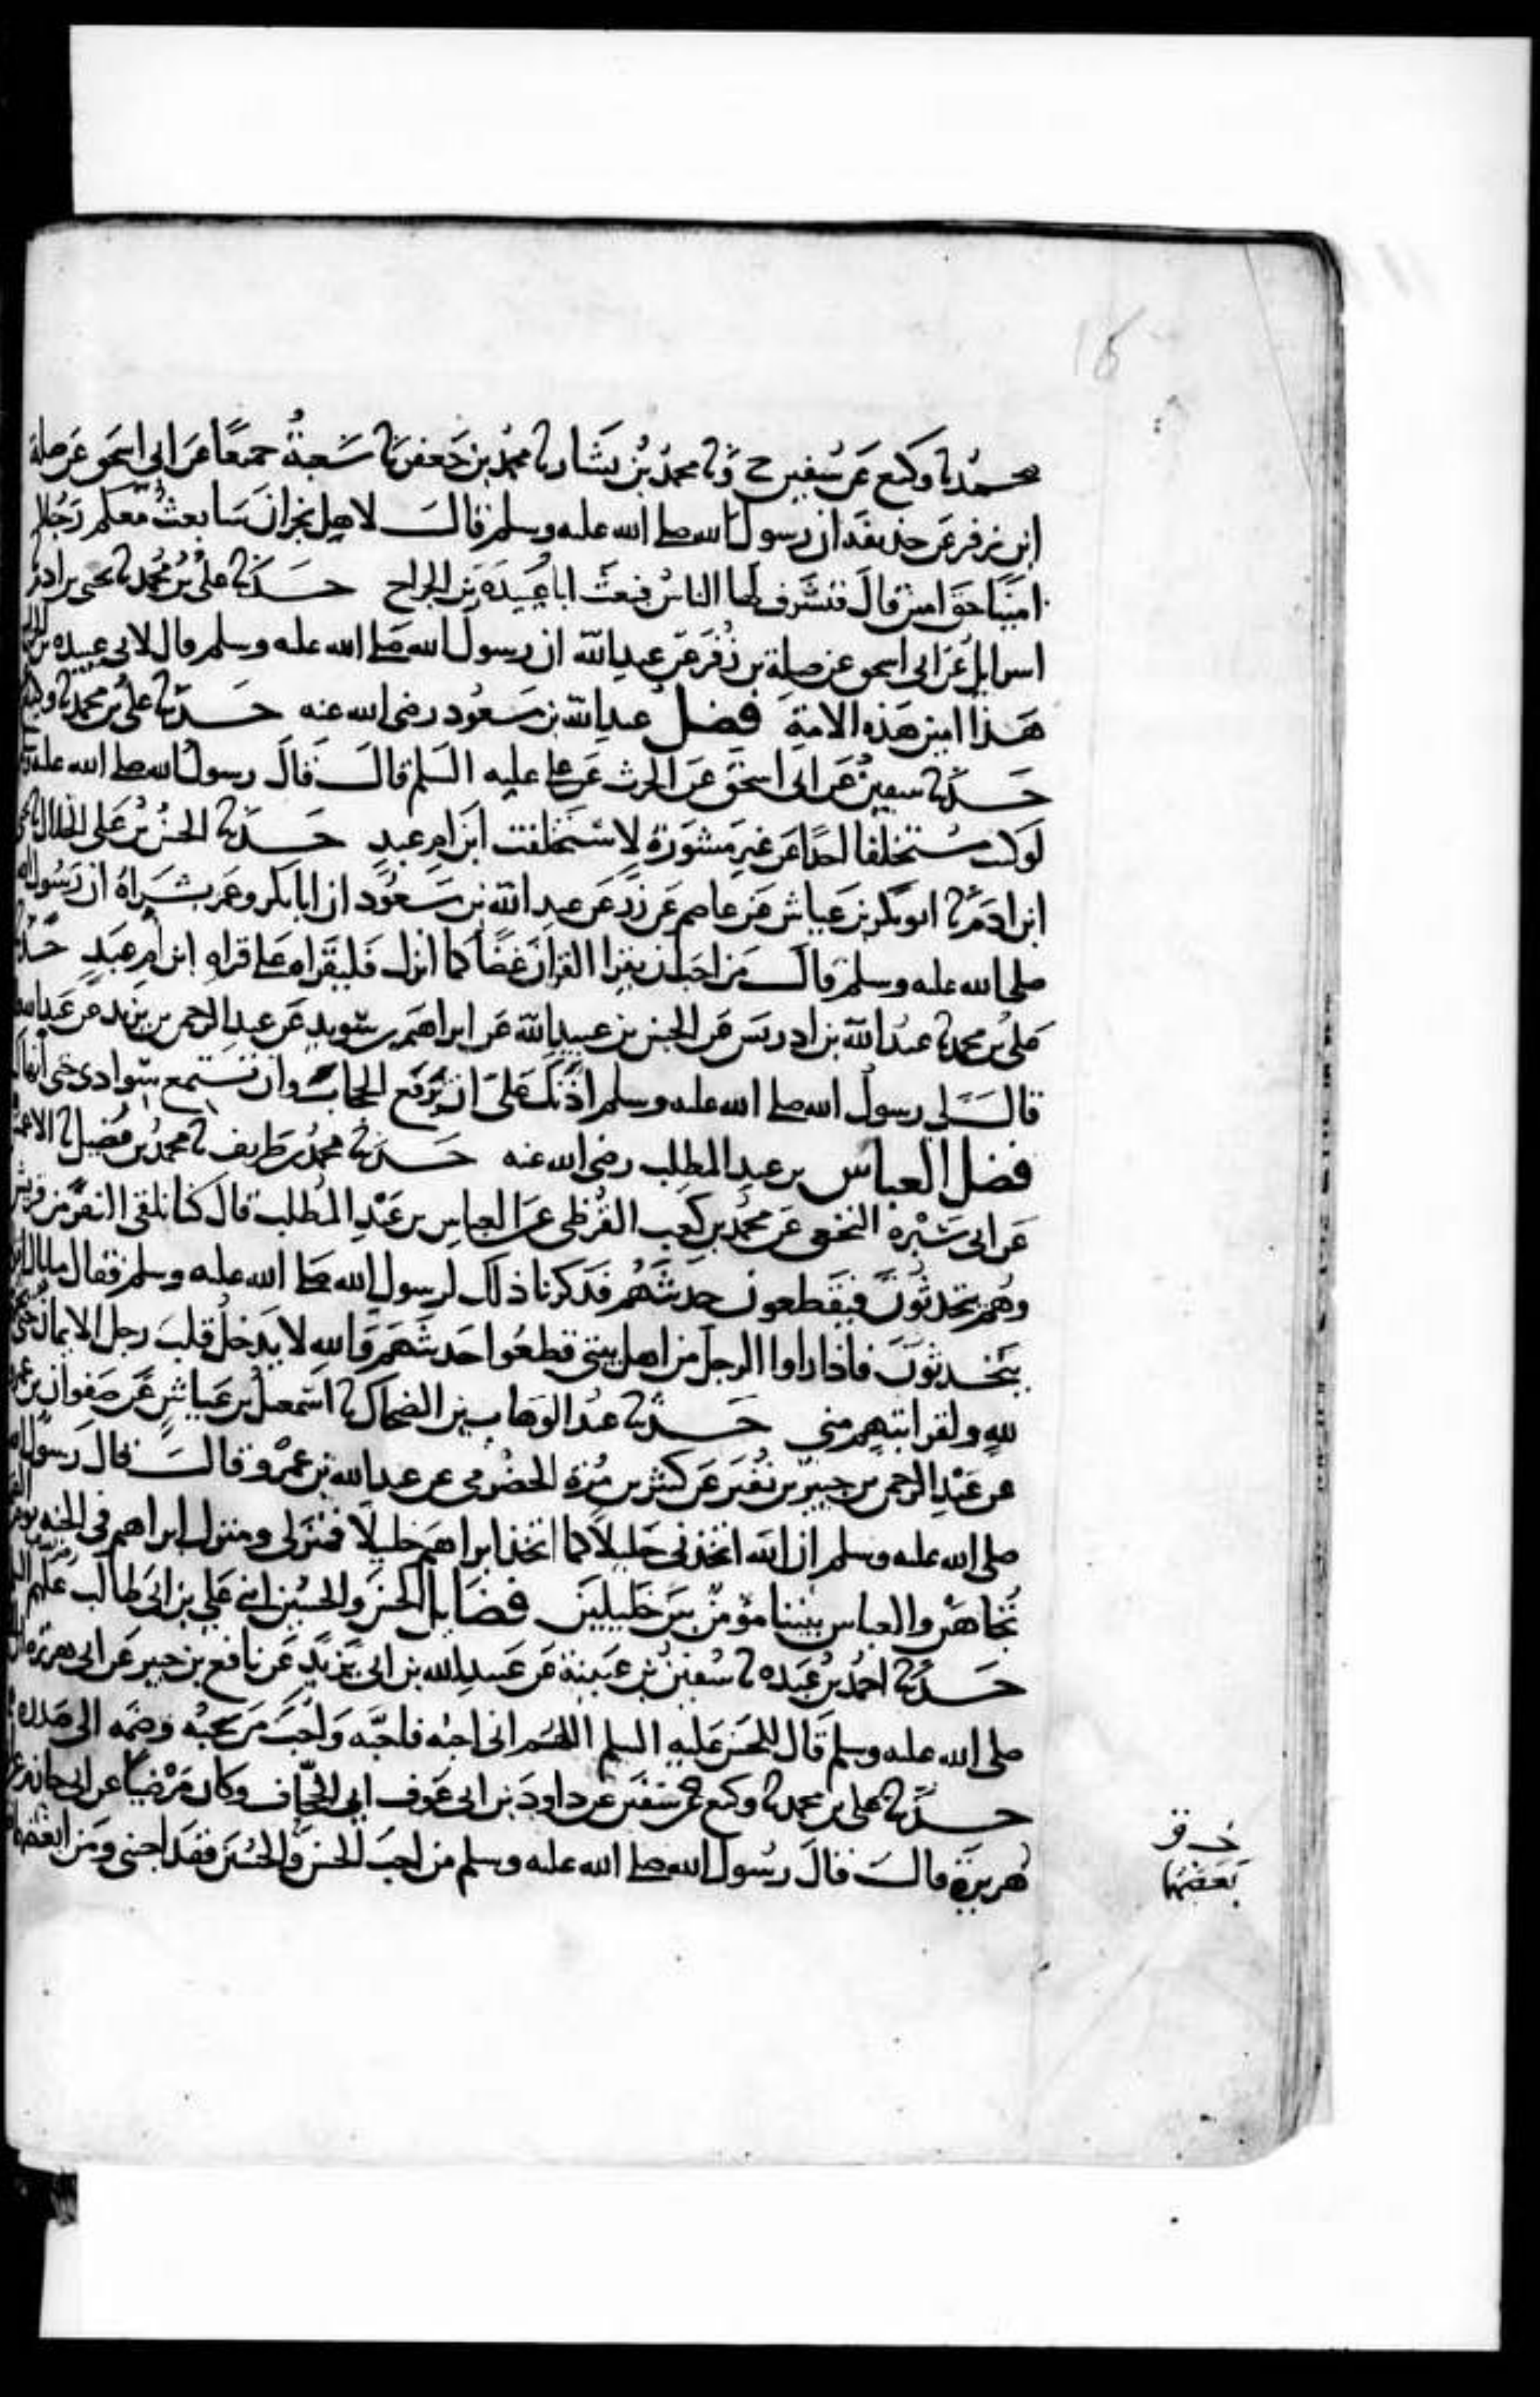 16
محمد نا وكيع عن سفين ح ونا محمد بن بشار نا محمد بن جعفر نا شعبة جميعا عن ابي اسحق عن صلة
ابن زفر عن حذيفة ان رسول الله صلى الله عليه وسلم قال لاهل نجران سابعث معكم رجلا
امينا حق امين قال فتشرف لها الناس فبعث ابا عبيدة بن الجراح حدثنا علي بن محمد نا يحيى بن ادم نا
اسرايل عن ابي اسحق عن صلة بن زفر عن عبد الله ان رسول الله صلى الله عليه وسلم قال لابي عبيدة بن الجراح
هذا امين هذه الامة فضل عبد الله بن مسعود رضي الله عنه حدثنا علي بن محمد نا وكيع
حدثنا سفين عن ابي اسحق عن الحرث عن علي عليه السلم قال قال رسول الله صلى الله عليه
لو كنت مستخلفا احدا عن غير مشورة لاستخلفت ابن ام عبد حدثنا الحسن بن علي الخلال نا يحيى
ابن ادم نا ابو بكر بن عياش عن عاصم عن زر عن عبد الله بن مسعود ان ابا بكر وعمر بشراه ان رسول الله
صلى الله عليه وسلم قال من احب ان يقرا القران غضا كما انزل فليقراه على قراه ابن ام عبد حدثنا
علي بن محمد نا عبد الله بن ادريس عن الحسن بن عبيد الله عن ابراهيم بن سويد عن عبد الرحمن بن يزيد عن عبد الله
قال قال لي رسول الله صلى الله عليه وسلم اذنك علي ان ترفع الحجاب وان تستمع سوادي حتى انهاك
فضل العباس بن عبد المطلب رضي الله عنه حدثنا محمد بن طريف نا محمد بن فضيل نا الاعمش
عن ابي سبرة النخعي عن محمد بن كعب القرظي عن العباس بن عبد المطلب قال كنا نلقى النفر من قريش
وهم يتحدثون فيقطعون حديثهم فذكرنا ذلك لرسول الله صلى الله عليه وسلم فقال ما بال اقوام
يتحدثون فاذا راوا الرجل من اهل بيتي قطعوا حديثهم والله لا يدخل قلب رجل الايمان حتى يحبهم
لله ولقرابتهم مني حدثنا عبد الوهاب بن الضحاك نا اسمعيل بن عياش عن صفوان بن عمرو
عن عبد الرحمن بن جبير بن نفير عن كثير بن مرة الحضرمي عن عبد الله بن عمرو قال قال رسول الله
صلى الله عليه وسلم ان الله اتخذني خليلا كما اتخذ ابراهيم خليلا فمنزلي ومنزل ابراهيم في الجنه يوم القيمة
تجاهين والعباس بيننا مؤمن بين خليلين فضايل الحسن والحسين ابني علي بن ابي طالب عليهم السلم
حدثنا احمد بن عبده نا سفين بن عيينة عن عبيد الله بن ابي يزيد عن نافع بن جبير عن ابي هريرة ان
صلى الله عليه وسلم قال للحسن عليه السلم اللهم اني احبه فاحبه واحب من يحبه وضمه الى صدره
حدثنا علي بن محمد نا وكيع عن سفين عن داود بن ابي عوف ابي الجحاف وكان مرضيا عن ابي حازم عن
هريرة قال قال رسول الله صلى الله عليه وسلم من احب الحسن والحسين فقد احبني ومن ابغضهما